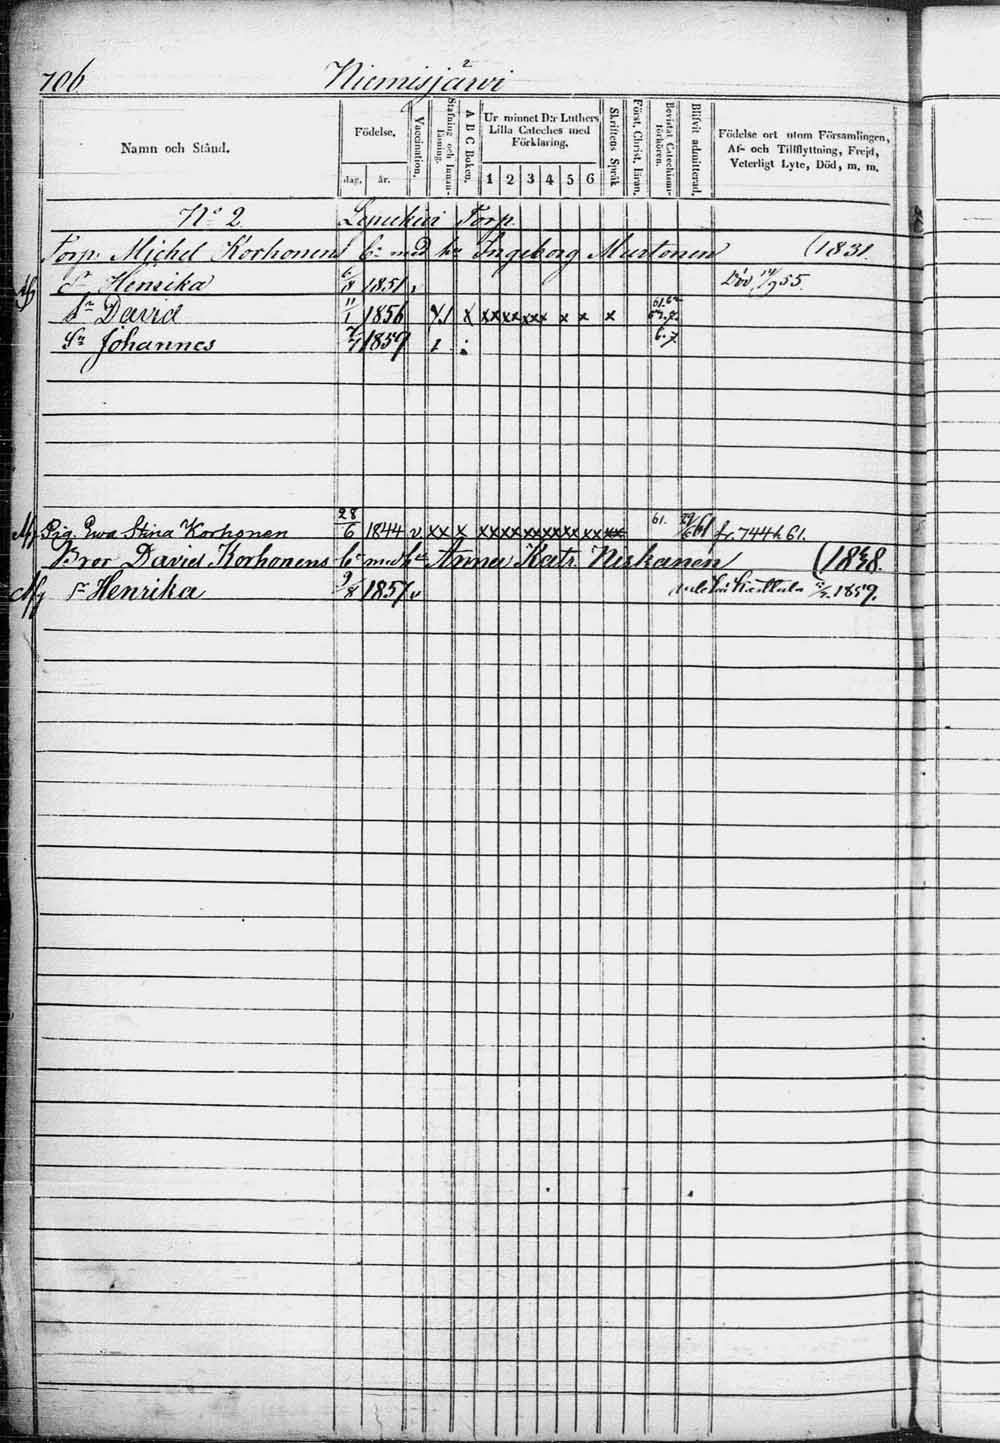 706 Niemisjärwi 2
Namn och Stånd. Födelse, dag, år. Vaccination. Stafning och Innan-läsning. A B C Boken. Ur minnet D:r Luthers Lilla Cateches med Förklaring. 1 2 3 4 5 6 Skriftens Språk Först. Christ. läran. Bevistat Catechismi-förhören. Blifvit admitterad. Födelse ort utom Församlingen, Af- och Tillflyttning, Frejd, Veterligt Lyte, Död, m. m.
N:o 2 Torp.
Torp. Michel Korhonens br med hu Ingeborg Murtonen (1831.
Dr Henrika 6/8 1851 Död 14/9 55.
Sn David 11/1 1856 x x xx xx xxx x x x 61.62
Sn Johannes 7/7 1859 1 6.7
Pig. Ewa Stina Korhonen 28/6 1844 v xx x xxxxxxxxxxxxxxx 61. 29/6 61 fr. 744 h 61.
Bror David Korhonens br med hu Anna Katr. Niskanen (1838.
Dr Henrika 9/8 1857 v 1859.